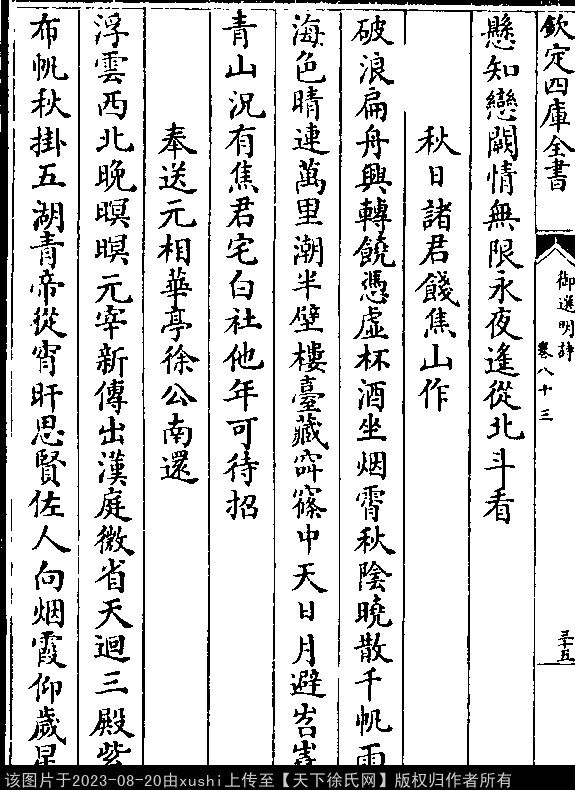 欽定四庫全書
御選明詩
卷八十三
三十五
懸知戀闕情無限永夜遙從北斗看
秋日諸君餞焦山作
破浪扁舟興轉饒憑虛杯酒坐烟霄秋陰曉散千帆雨
海色晴連萬里潮半壁樓臺藏窅窱中天日月避岧嶤
青山況有焦君宅白社他年可待招
奉送元相華亭徐公南還
浮雲西北晚暝暝元宰新傳出漢庭微省天迴三殿紫
布帆秋掛五湖青帝從宵旰思賢佐人向烟霞仰歲星
该图片于2023-08-20由xushi上传至【天下徐氏网】版权归作者所有